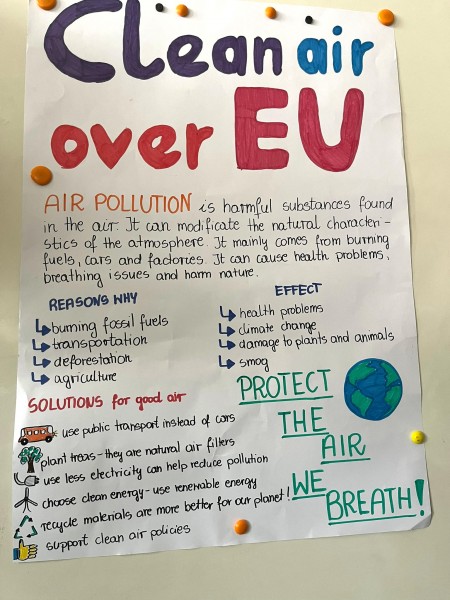 Clean air
over EU
AIR POLLUTION is harmful substances found
in the air. It can modificate the natural characteri-
stics of the atmosphere. It mainly comes from burning
fuels, cars and factories. It can cause health problems,
breathing issues and harm nature.
REASONS WHY
burning fossil fuels
transportation
deforestation
agriculture
EFFECT
health problems
climate change
damage to plants and animals
smog
SOLUTIONS for good air
use public transport instead of cars
plant treas - they are natural air fillers
use less electricity can help reduce pollution
choose clean energy - use renewable energy
recycle materials are more better for our planet!
support clean air policies
PROTECT
THE
AIR
WE
BREATH!